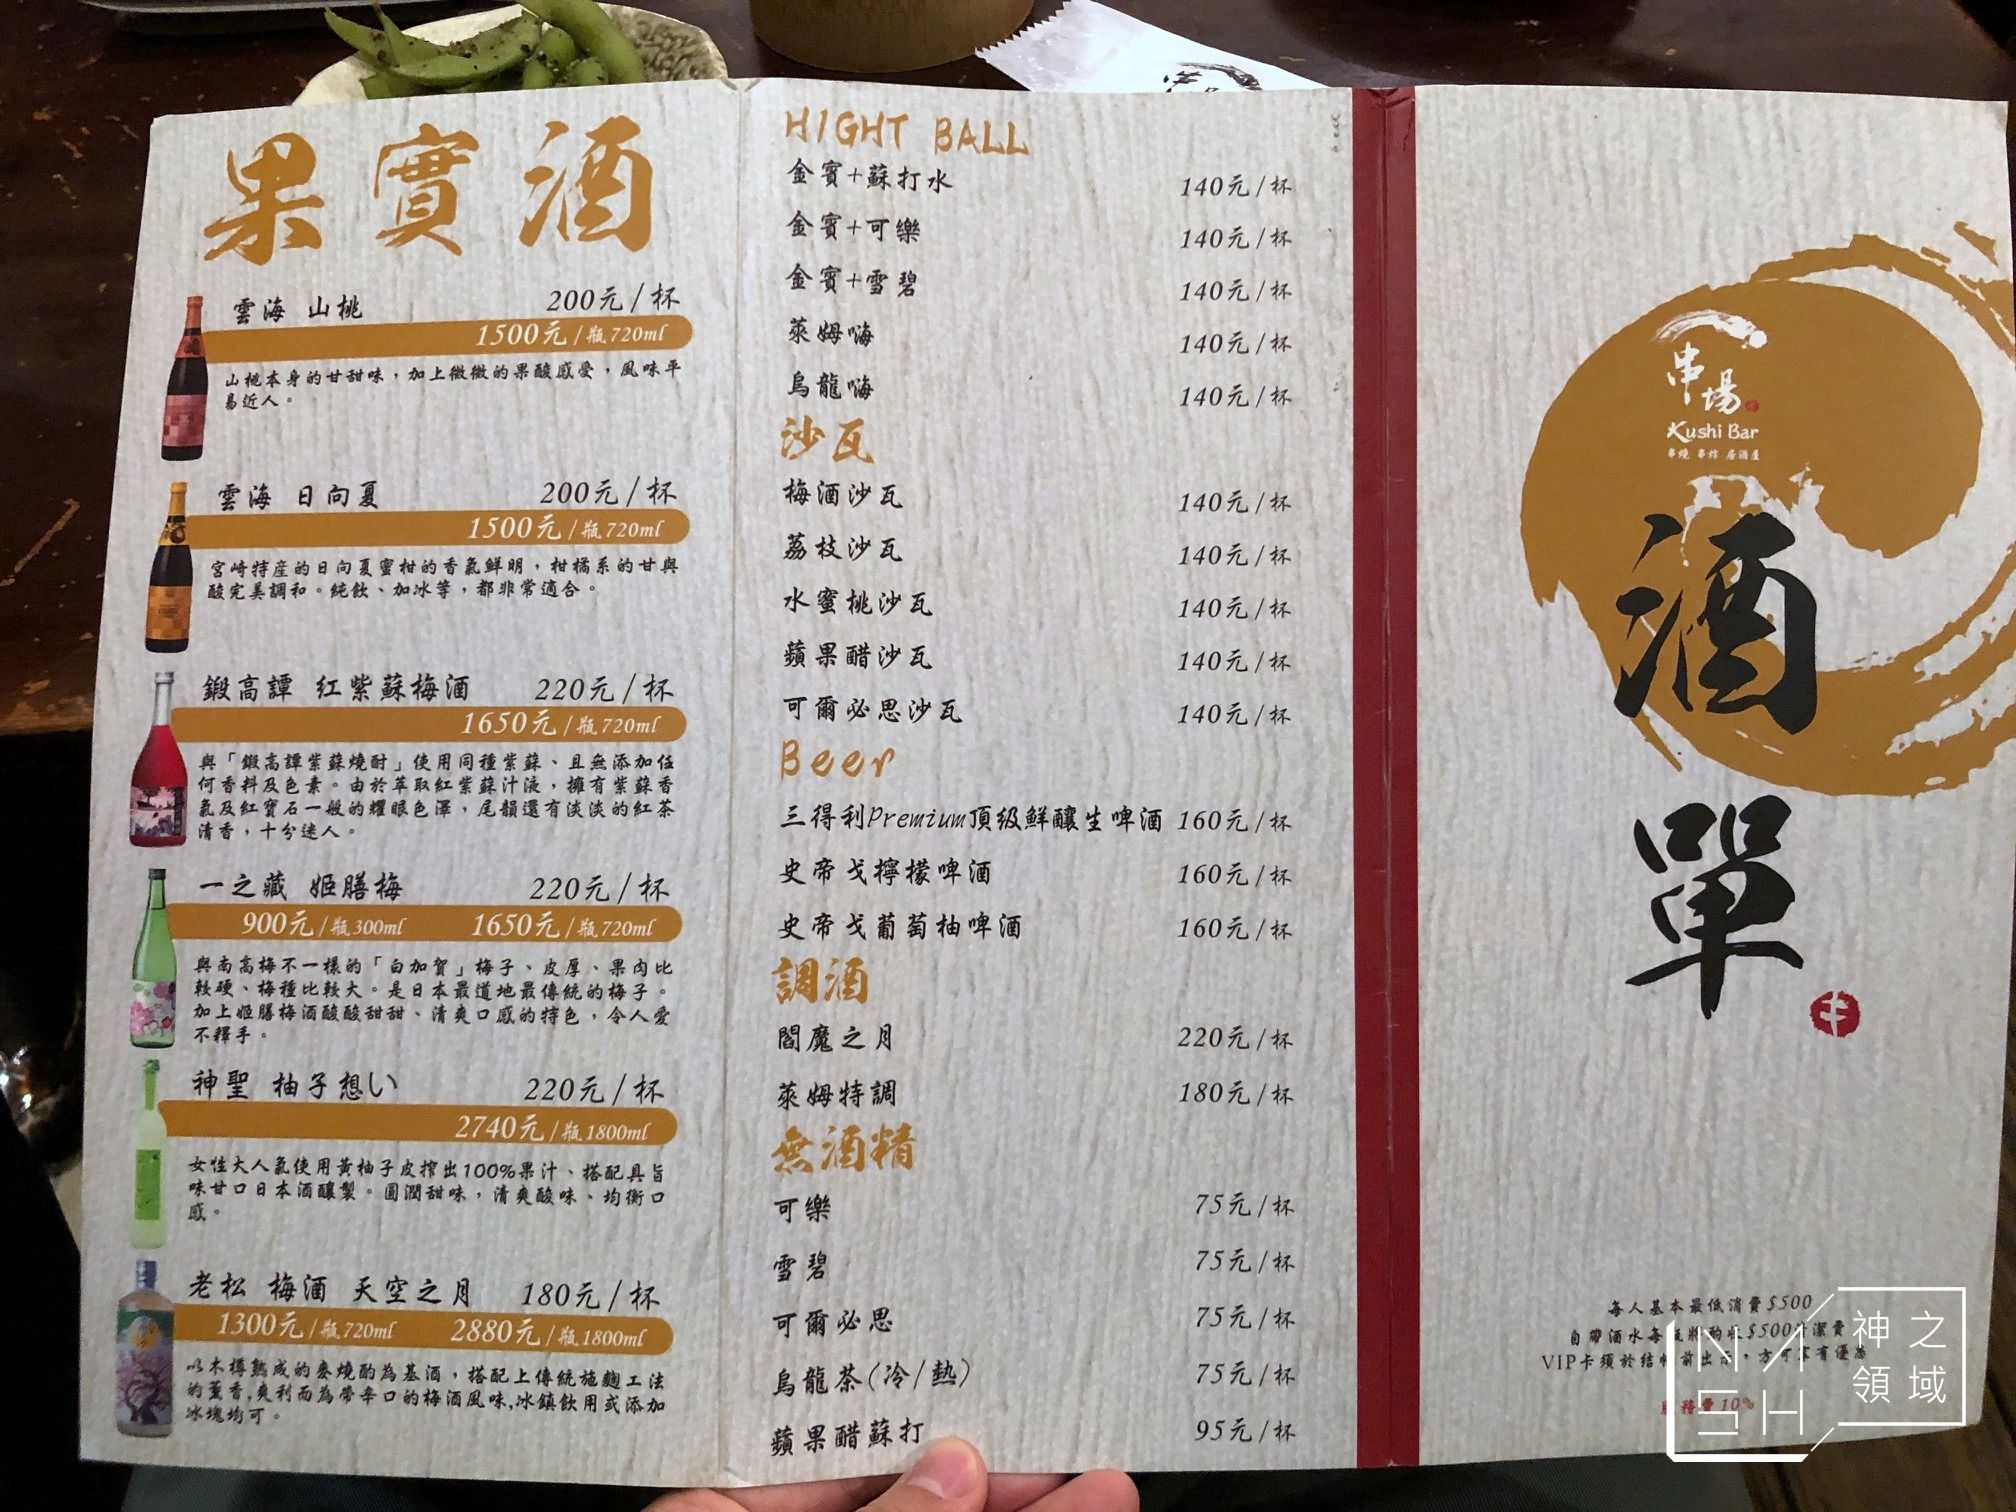 果實酒
雲海 山桃 200元/杯
1500元/瓶720ml
山桃本身的甘甜味，加上微微的果酸感受，風味平
易近人。
雲海 日向夏 200元/杯
1500元/瓶720ml
宮崎特產的日向夏蜜柑的香氣鮮明，柑橘系的甘與
酸完美調和。純飲、加冰等，都非常適合。
鍛高譚 紅紫蘇梅酒 220元/杯
1650元/瓶720ml
與「鍛高譚紫蘇燒酎」使用同種紫蘇、且無添加任
何香料及色素。由於萃取紅紫蘇汁液，擁有紫蘇香
氣及紅寶石一般的耀眼色澤，尾韻還有淡淡的紅茶
清香，十分迷人。
一之藏 姬膳梅 220元/杯
900元/瓶300ml 1650元/瓶720ml
與南高梅不一樣的「白加賀」梅子、皮厚、果肉比
較硬、梅種比較大。是日本最道地最傳統的梅子。
加上姬膳梅酒酸酸甜甜、清爽口感的特色，令人愛
不釋手。
神聖 柚子想い 220元/杯
2740元/瓶1800ml
女性大人氣使用黃柚子皮搾出100%果汁、搭配具旨
味甘口日本酒釀製。圓潤甜味，清爽酸味、均衡口
感。
老松 梅酒 天空之月 180元/杯
1300元/瓶720ml 2880元/瓶1800ml
以木樽熟成的麥燒酌為基酒，搭配上傳統施麴工法
的薰香,爽利而為帶辛口的梅酒風味,冰鎮飲用或添加
冰塊均可。
HIGHT BALL
金賓+蘇打水 140元/杯
金賓+可樂 140元/杯
金賓+雪碧 140元/杯
萊姆嗨 140元/杯
烏龍嗨 140元/杯
沙瓦
梅酒沙瓦 140元/杯
荔枝沙瓦 140元/杯
水蜜桃沙瓦 140元/杯
蘋果醋沙瓦 140元/杯
可爾必思沙瓦 140元/杯
Beer
三得利Premium頂級鮮釀生啤酒 160元/杯
史帝戈檸檬啤酒 160元/杯
史帝戈葡萄柚啤酒 160元/杯
調酒
閻魔之月 220元/杯
萊姆特調 180元/杯
無酒精
可樂 75元/杯
雪碧 75元/杯
可爾必思 75元/杯
烏龍茶(冷/熱) 75元/杯
蘋果醋蘇打 95元/杯
串場
Kushi Bar
串燒 串炸 居酒屋
酒單
每人基本最低消費$500
自帶酒水每瓶將酌收$500清潔費
VIP卡須於結帳前出示，方可享有優惠
服務費10%
神之領域
MSH